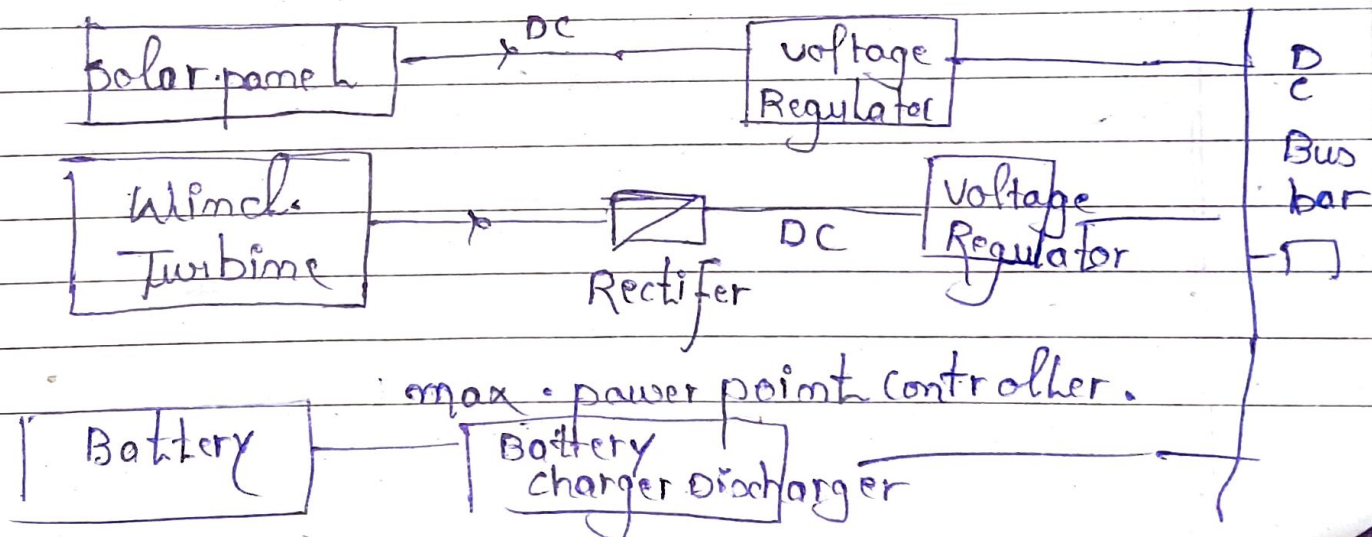 Solar panel
DC
Voltage
Regulator
D
C
Bus
bar
Wind.
Turbine
Rectifer
DC
Voltage
Regulator
max. pawer point controller.
Battery
Battery
charger Discharger